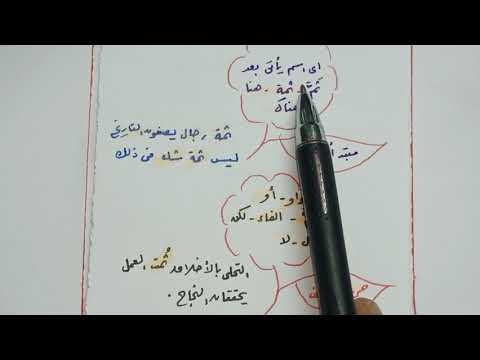 أى اسم يأتى بعد
ثَمَّ - ثمة - هنا
هناك
ثمة رجال يصنعون التاريخ
ليس ثمة شك فى ذلك
أو
الفاء - لكن
لا
التحلى بالأخلاق ثُمت العمل
يحققان النجاح .